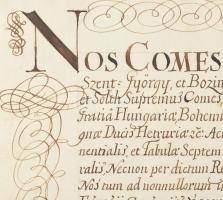 NOS COMES
Szent-György, et Bozin
et Solth Supremus Comes
gratiâ Hungariæ, Bohem
gnæ Ducis Hetruriæ &c. Ac
nentialis, et Tabulæ Septem
ralis, Necnon per dictum Re
Nos tum ad nonnullorum